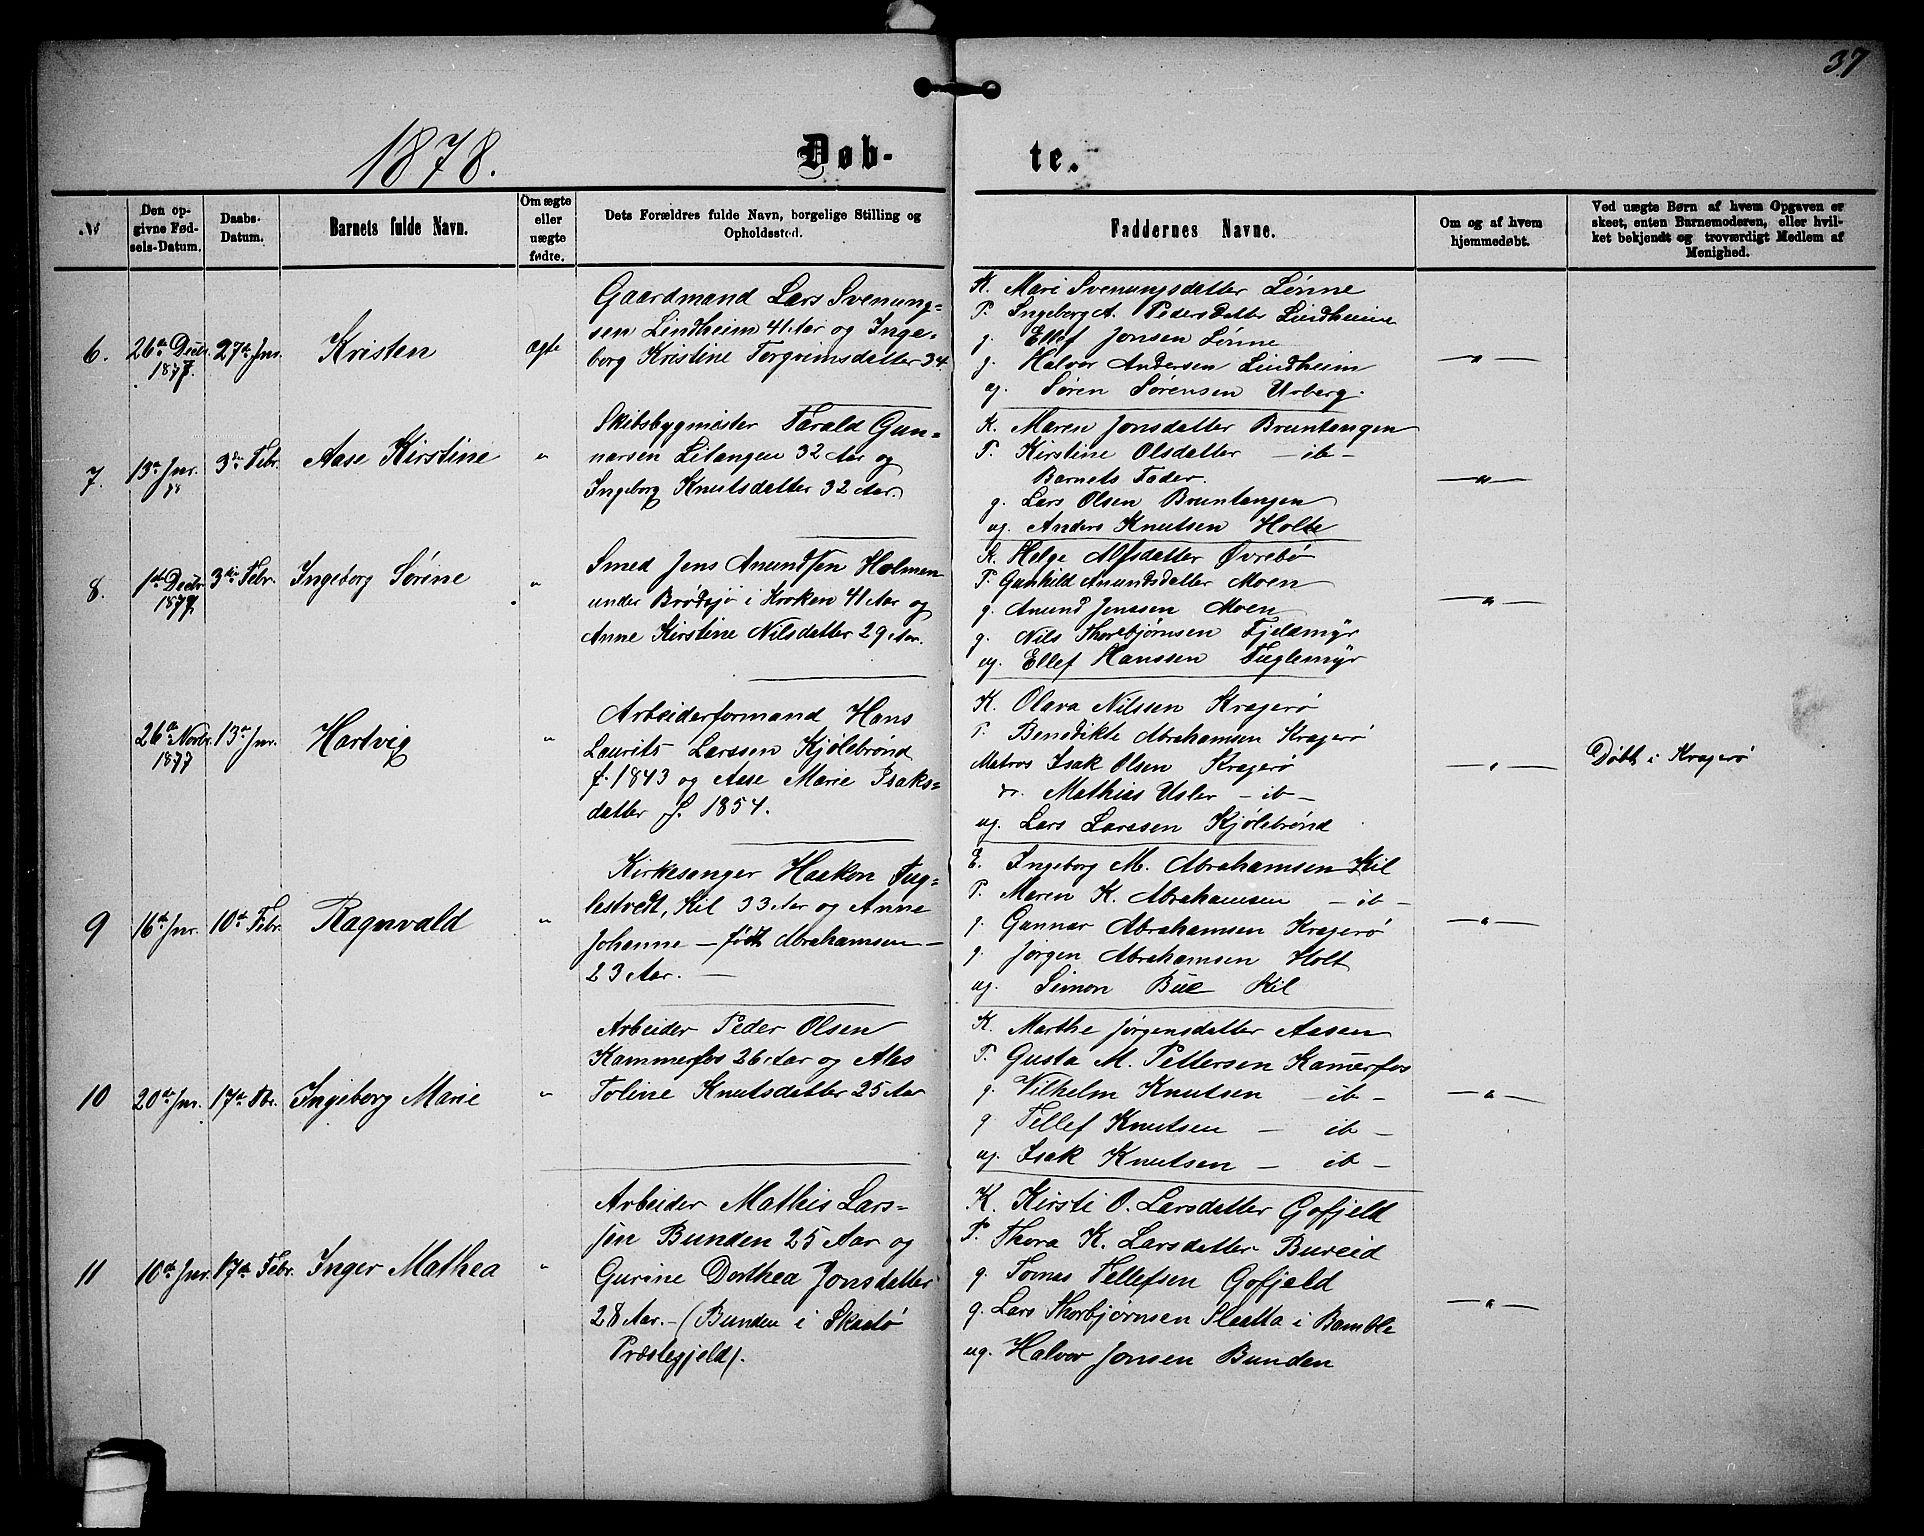 37
1878.
Døb-
te.
№
Den op-
givne Fød-
sels-Datum.
Daabs-
Datum.
Barnets fulde Navn.
Om ægte
eller
uægte
fødte.
Dets Forældres fulde Navn, borgelige Stilling og
Opholdssted.
Faddernes Navne.
Om og af hvem
hjemmedøbt.
Ved uægte Børn af hvem Opgaven er
skeet, enten Barnemoderen, eller hvil-
ket bekjendt og troværdigt Medlem af
Menighed.
6.
26de Decbr.
1877.
27de Jnr.
Kristen
ægte
Gaardmand Lars Svenung-
sen Lindheim 41 Aar og Inge-
borg Kristine Torgrimsdatter 34.
K. Mari Svenungsdatter Lønne
P. Ingeborg A. Pedersdatter Lindheim
g. Ellef Jonsen Lønne
g. Halvor Andersen Lindheim
ug. Søren Sørensen Urberg.
— " —
7.
13de Jnr.
78
3die Febr.
Aase Kirstine
"
Skibsbygmester Tarald Gun-
narsen Litangen 32 Aar og
Ingeborg Knutsdatter 32 Aar.
K. Maren Jonsdatter Bruntangen
P. Kirstine Olsdatter — ib —
Barnets Fader.
g. Lars Olsen Bruntangen
ug. Anders Knutsen Holte
— " —
8.
1ste Decbr
1877.
3die Febr.
Ingeborg Sørine
"
Smed Jens Anundsen Holmen
under Brødsjø i Kroken 41 Aar og
Anne Kirstine Nilsdatter 29 Aar.
K. Helge Alfsdatter Øvrebø
P. Gunhild Anundsdatter Moen
g. Anund Jenssen Moen
g. Nils Thorbjørnsen Fjeldmyr
ug. Ellef Hanssen Fuglemyr
— " —
26de Novbr.
1877
13de Jnr.
Hartvig
"
Arbeiderformand Hans
Laurits Larssen Kjølebrønd
f. 1843 og Aase Marie Isaks-
datter f. 1854.
K. Olava Nilssen Kragerø
P. Benedikte Abrahamsen Kragerø
Matros Isak Olsen Kragerø
do. Mathias Usler — ib —
ug. Lars Larssen Kjølebrønd
— " —
Døbt i Kragerø
9
16de Jnr.
10de Febr.
Ragnvald
"
Kirkesanger Haakon Fug-
lestvedt, Kil 33 Aar og Anne
Johanne — født Abrahamsen —
23 Aar. —
E. Ingeborg M. Abrahamsen Kil
P. Maren K. Abrahamsen — ib —
g. Gunnar Abrahamsen Kragerø
g. Jørgen Abrahamsen Holt
ug. Simon Bue Kil
— " —
10
20de Jnr.
17de Fbr.
Ingeborg Marie
"
Arbeider Peder Olsen
Kammerfos 26 Aar og Ales
Toline Knutsdatter 25 Aar
K. Marthe Jørgensdatter Aasen
P. Gusta M. Pettersen Kam̄erfos
g. Vilhelm Knutsen — ib —
g. Tellef Knutsen — ib —
ug. Isak Knutsen — ib —
— " —
11
10de Jnr.
17de Febr.
Inger Mathea
"
Arbeider Mathis Lars-
sen Bunden 25 Aar og
Gurine Dorthea Jonsdatter
28 Aar. — (Bunden i Skaatø
Præstegjeld).
K. Kirsti O. Larsdatter Gofjeld
P. Thora K. Larsdatter Bureid
g. Tomas Tellefsen Gofjeld
g. Lars Thorbjørnsen Slaatta i Bamble
ug. Halvor Jonsen Bunden
— " —